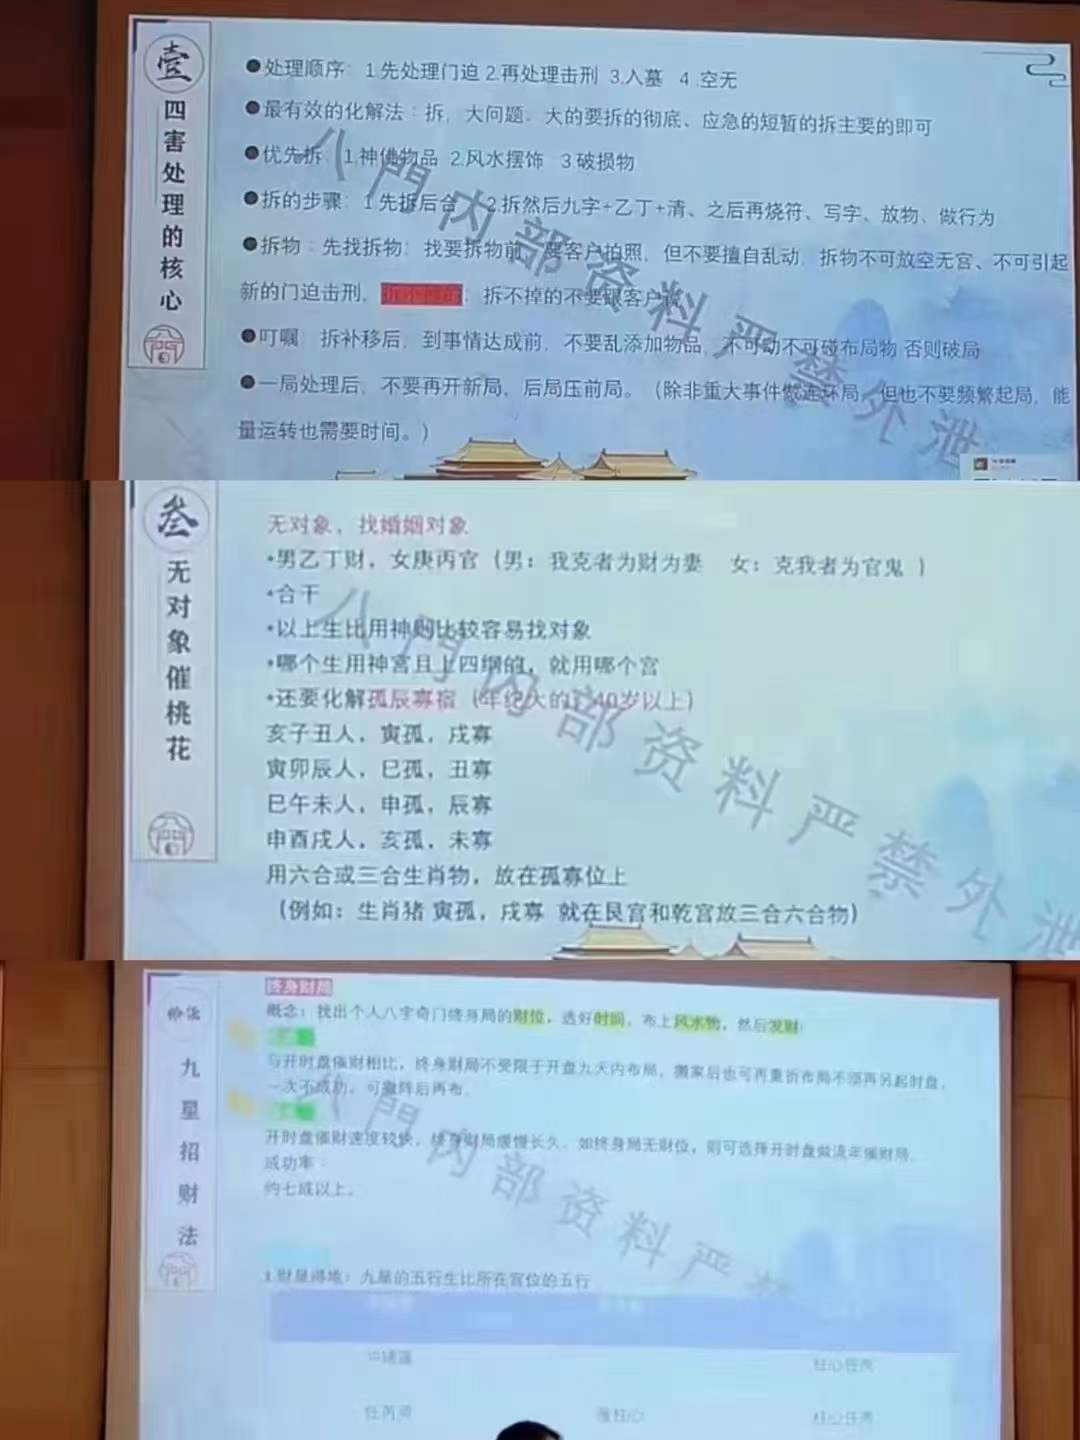 壹
四害处理的核心
●处理顺序：1.先处理门迫 2.再处理击刑 3.入墓 4.空无
●最有效的化解法：拆，大问题、大的要拆的彻底、应急的短暂的拆主要的即可
●优先拆：1.神佛物品 2.风水摆饰 3.破损物
●拆的步骤：1.先拆后合 2.拆然后九字+乙丁+清、之后再烧符、写字、放物、做行为
●拆物：先找拆物；找要拆物前，要客户拍照，但不要擅自乱动，拆物不可放空无宫、不可引起
新的门迫击刑，拆不掉的不要跟客户说
●叮嘱：拆补移后，到事情达成前，不要乱添加物品，不可动不可碰布局物 否则破局
●一局处理后，不要再开新局，后局压前局。（除非重大事件做连环局，但也不要频繁起局，能
量运转也需要时间。）
八門内部资料严禁外泄
叁
无对象催桃花
无对象，找婚姻对象
•男乙丁财，女庚丙官（男：我克者为财为妻 女：克我者为官鬼 ）
•合干
•以上生比用神则比较容易找对象
•哪个生用神宫且上四纲的，就用哪个宫
•还要化解孤辰寡宿（年纪大的，40岁以上）
亥子丑人，寅孤，戌寡
寅卯辰人，巳孤，丑寡
巳午未人，申孤，辰寡
申酉戌人，亥孤，未寡
用六合或三合生肖物，放在孤寡位上
（例如：生肖猪 寅孤，戌寡 就在艮宫和乾宫放三合六合物）
八門内部资料严禁外泄
九星招财法
终身财局
概念：找出个人八字奇门终身局的财位，选好时间，布上风水物，然后发财
与开时盘催财相比，终身财局不受限于开盘九天内布局，搬家后也可再重新布局不须再另起时盘，
一次不成功，可撤阵后再布．
开时盘催财速度较快，终身财局缓慢长久．如终身局无财位，则可选择开时盘做流年催财局．
成功率：
约七成以上。
1.财星得地：九星的五行生比所在宫位的五行
冲辅蓬
柱心任芮
任芮英
蓬柱心
柱心任芮
八門内部资料严禁